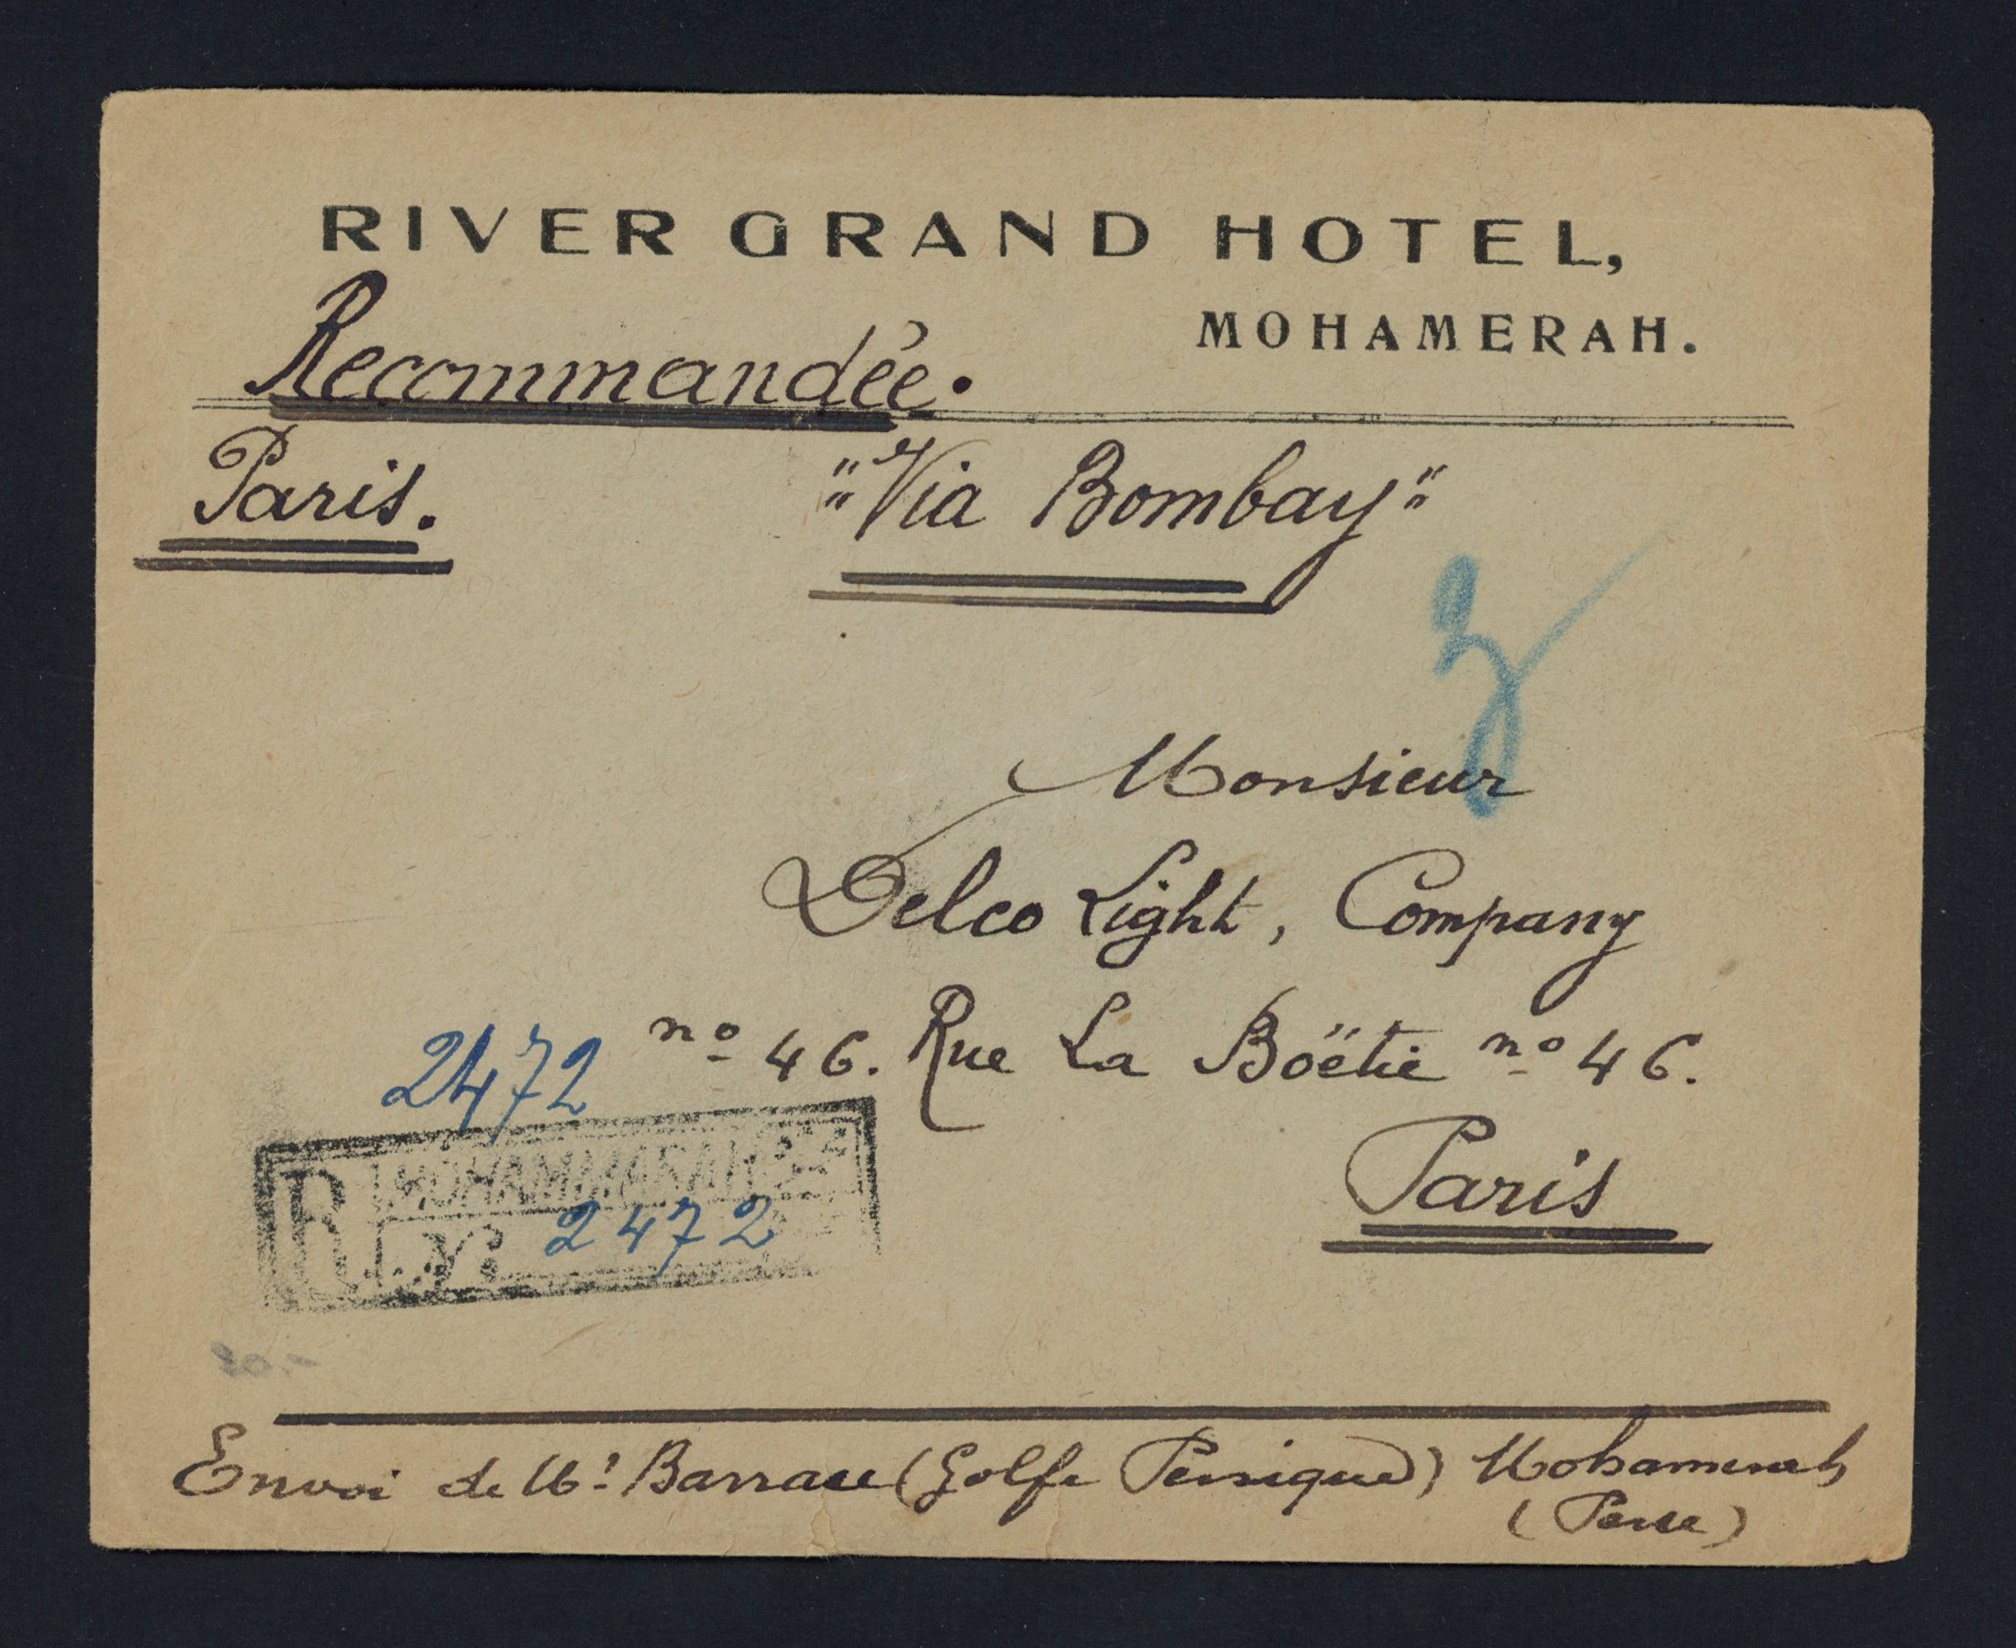 RIVER GRAND HOTEL,
MOHAMERAH.
Recommandée.
Paris.
"Via Bombay"
Monsieur
Delco Light, Company
nº 46. Rue La Boëtie nº 46.
Paris
2472
R MOHAMMARAH
Nº 2472
Envoi de Mr Barrau (Golfe Persique) Mohamerah
(Perse)